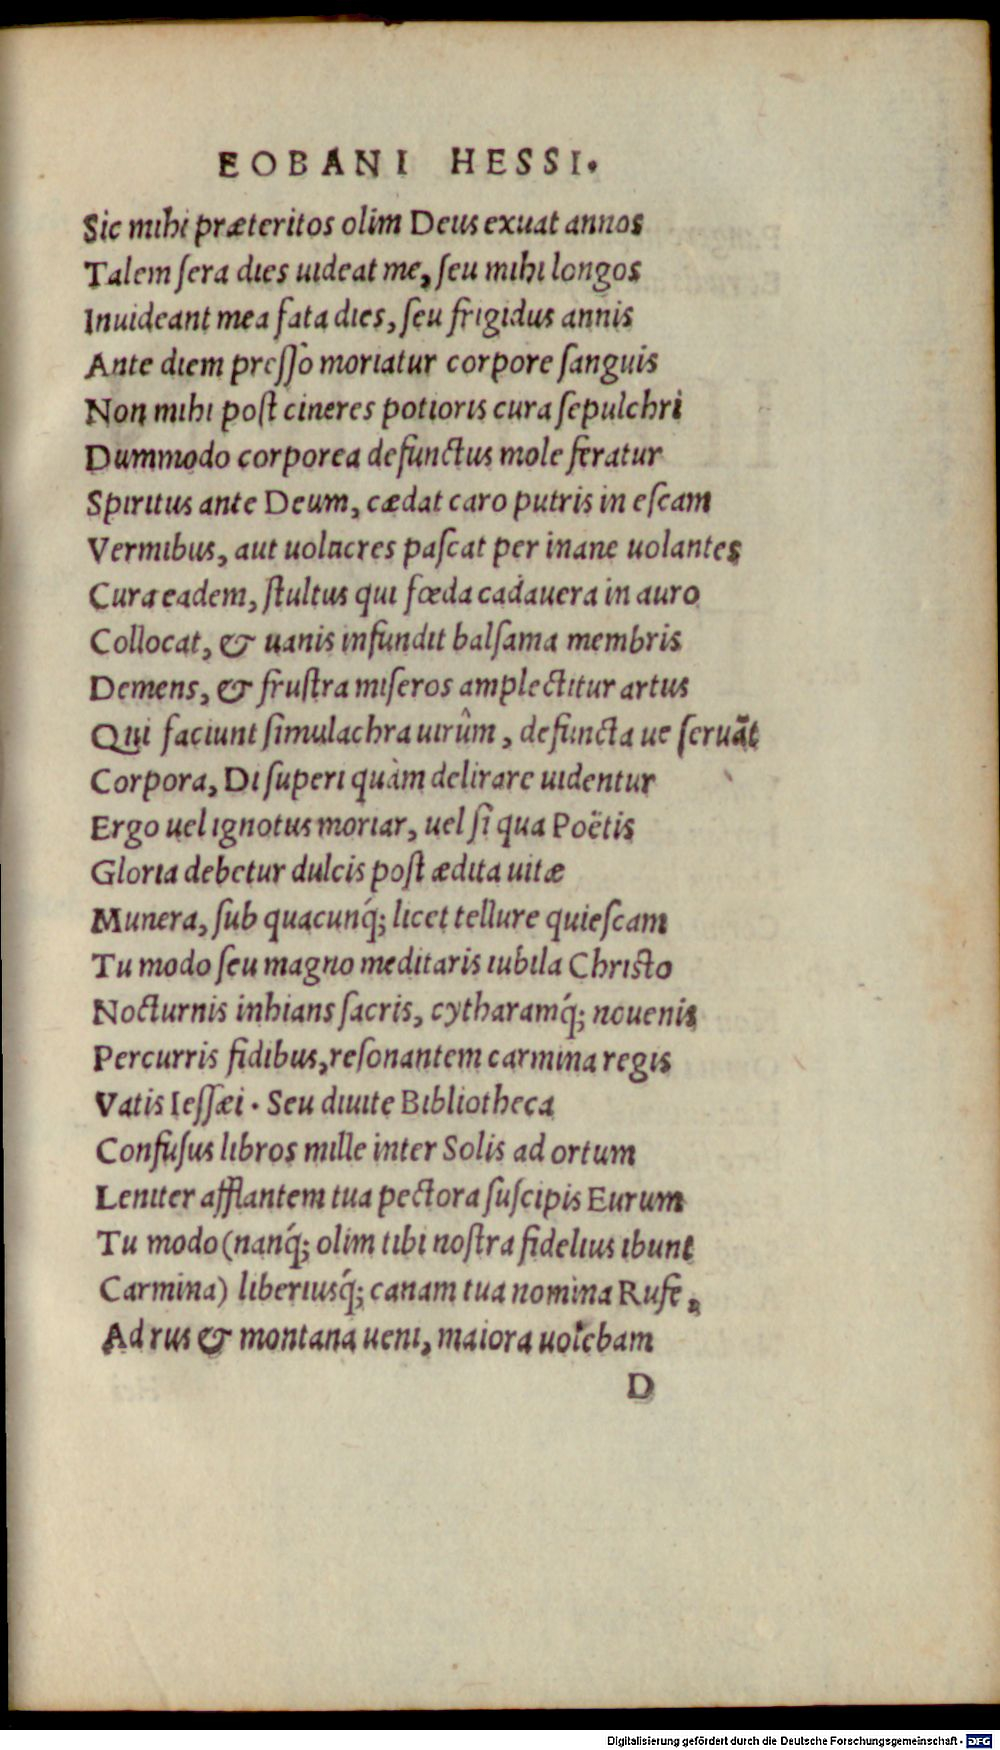 EOBANI HESSI.
Sic mihi præteritos olim Deus exuat annos
Talem ſera dies uideat me, ſeu mihi longos
Inuideant mea fata dies, ſeu frigidus annis
Ante diem preſſo moriatur corpore ſanguis
Non mihi poſt cineres potioris cura ſepulchri
Dummodo corporea defunctus mole feratur
Spiritus ante Deum, cædat caro putris in eſcam
Vermibus, aut uolucres paſcat per inane uolantes
Cura eadem, ſtultus qui fœda cadauera in auro
Collocat, & uanis infundit balſama membris
Demens, & fruſtra miſeros amplectitur artus
Qui faciunt ſimulachra uirûm, defuncta ue ſeruãt
Corpora, Di ſuperi quàm delirare uidentur
Ergo uel ignotus moriar, uel ſi qua Poëtis
Gloria debetur dulcis poſt ædita uitæ
Munera, ſub quacunq́; licet tellure quieſcam
Tu modo ſeu magno meditaris iubila Chriſto
Nocturnis inhians ſacris, cytharamq́; nouenis
Percurris fidibus, reſonantem carmina regis
Vatis Ieſſæi. Seu diuite Bibliotheca
Confuſus libros mille inter Solis ad ortum
Leniter afflantem tua pectora ſuſcipis Eurum
Tu modo (nanq́; olim tibi noſtra fidelius ibunt
Carmina) liberiusq́; canam tua nomina Rufe,
Ad rus & montana ueni, maiora uolebam
D
Digitalisierung gefördert durch die Deutsche Forschungsgemeinschaft - DFG